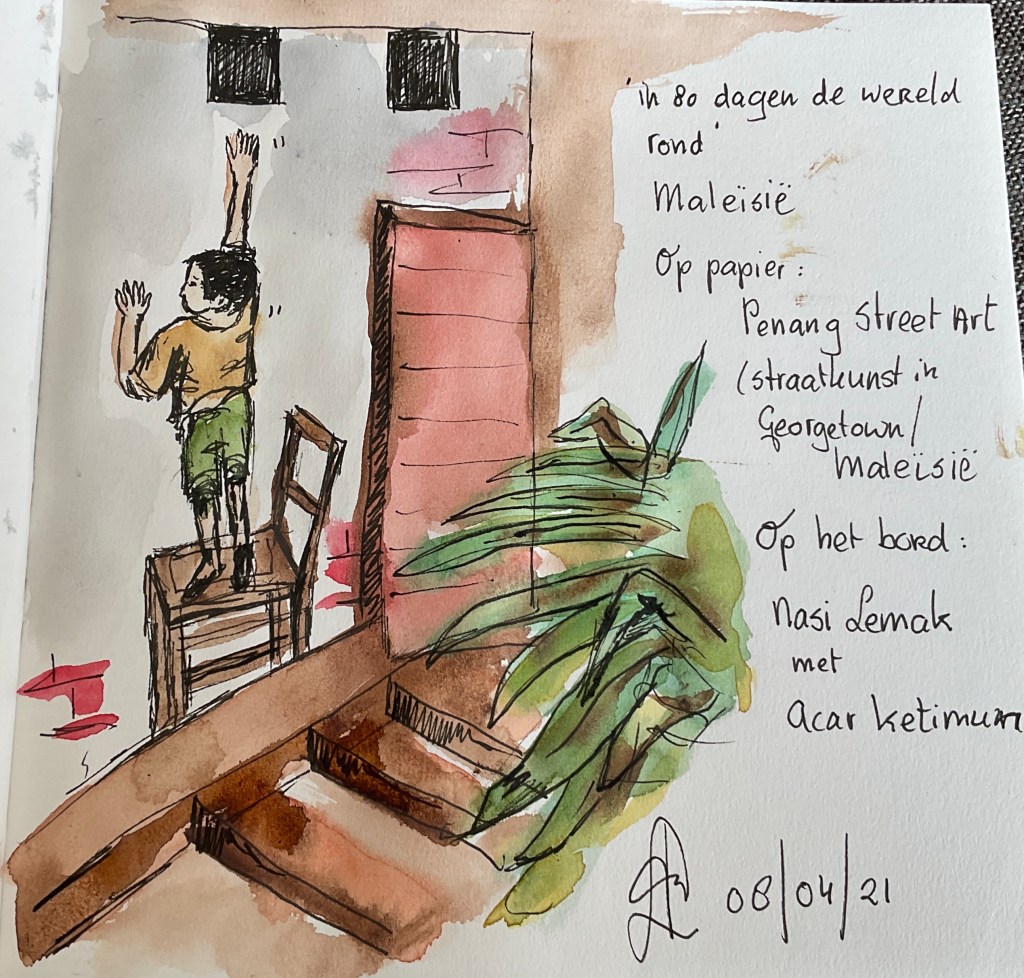 'in 80 dagen de wereld
rond'
Maleïsië
Op papier:
Penang Street Art
(straatkunst in
Georgetown/
Maleïsië
Op het bord:
Nasi Lemak
met
Acar Ketimum
08/04/21